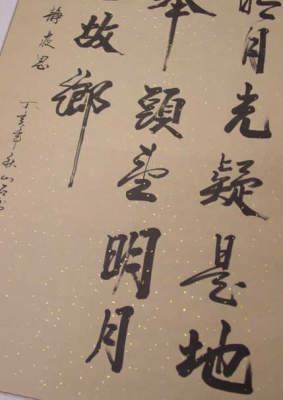 明月光疑是地
举頭望明月
故鄉
静夜思
丁亥年秋山石